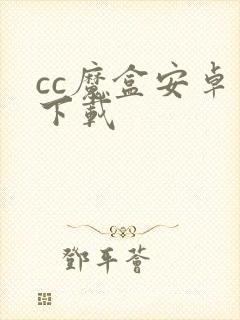 cc魔盒安卓
下载
鄧平薈